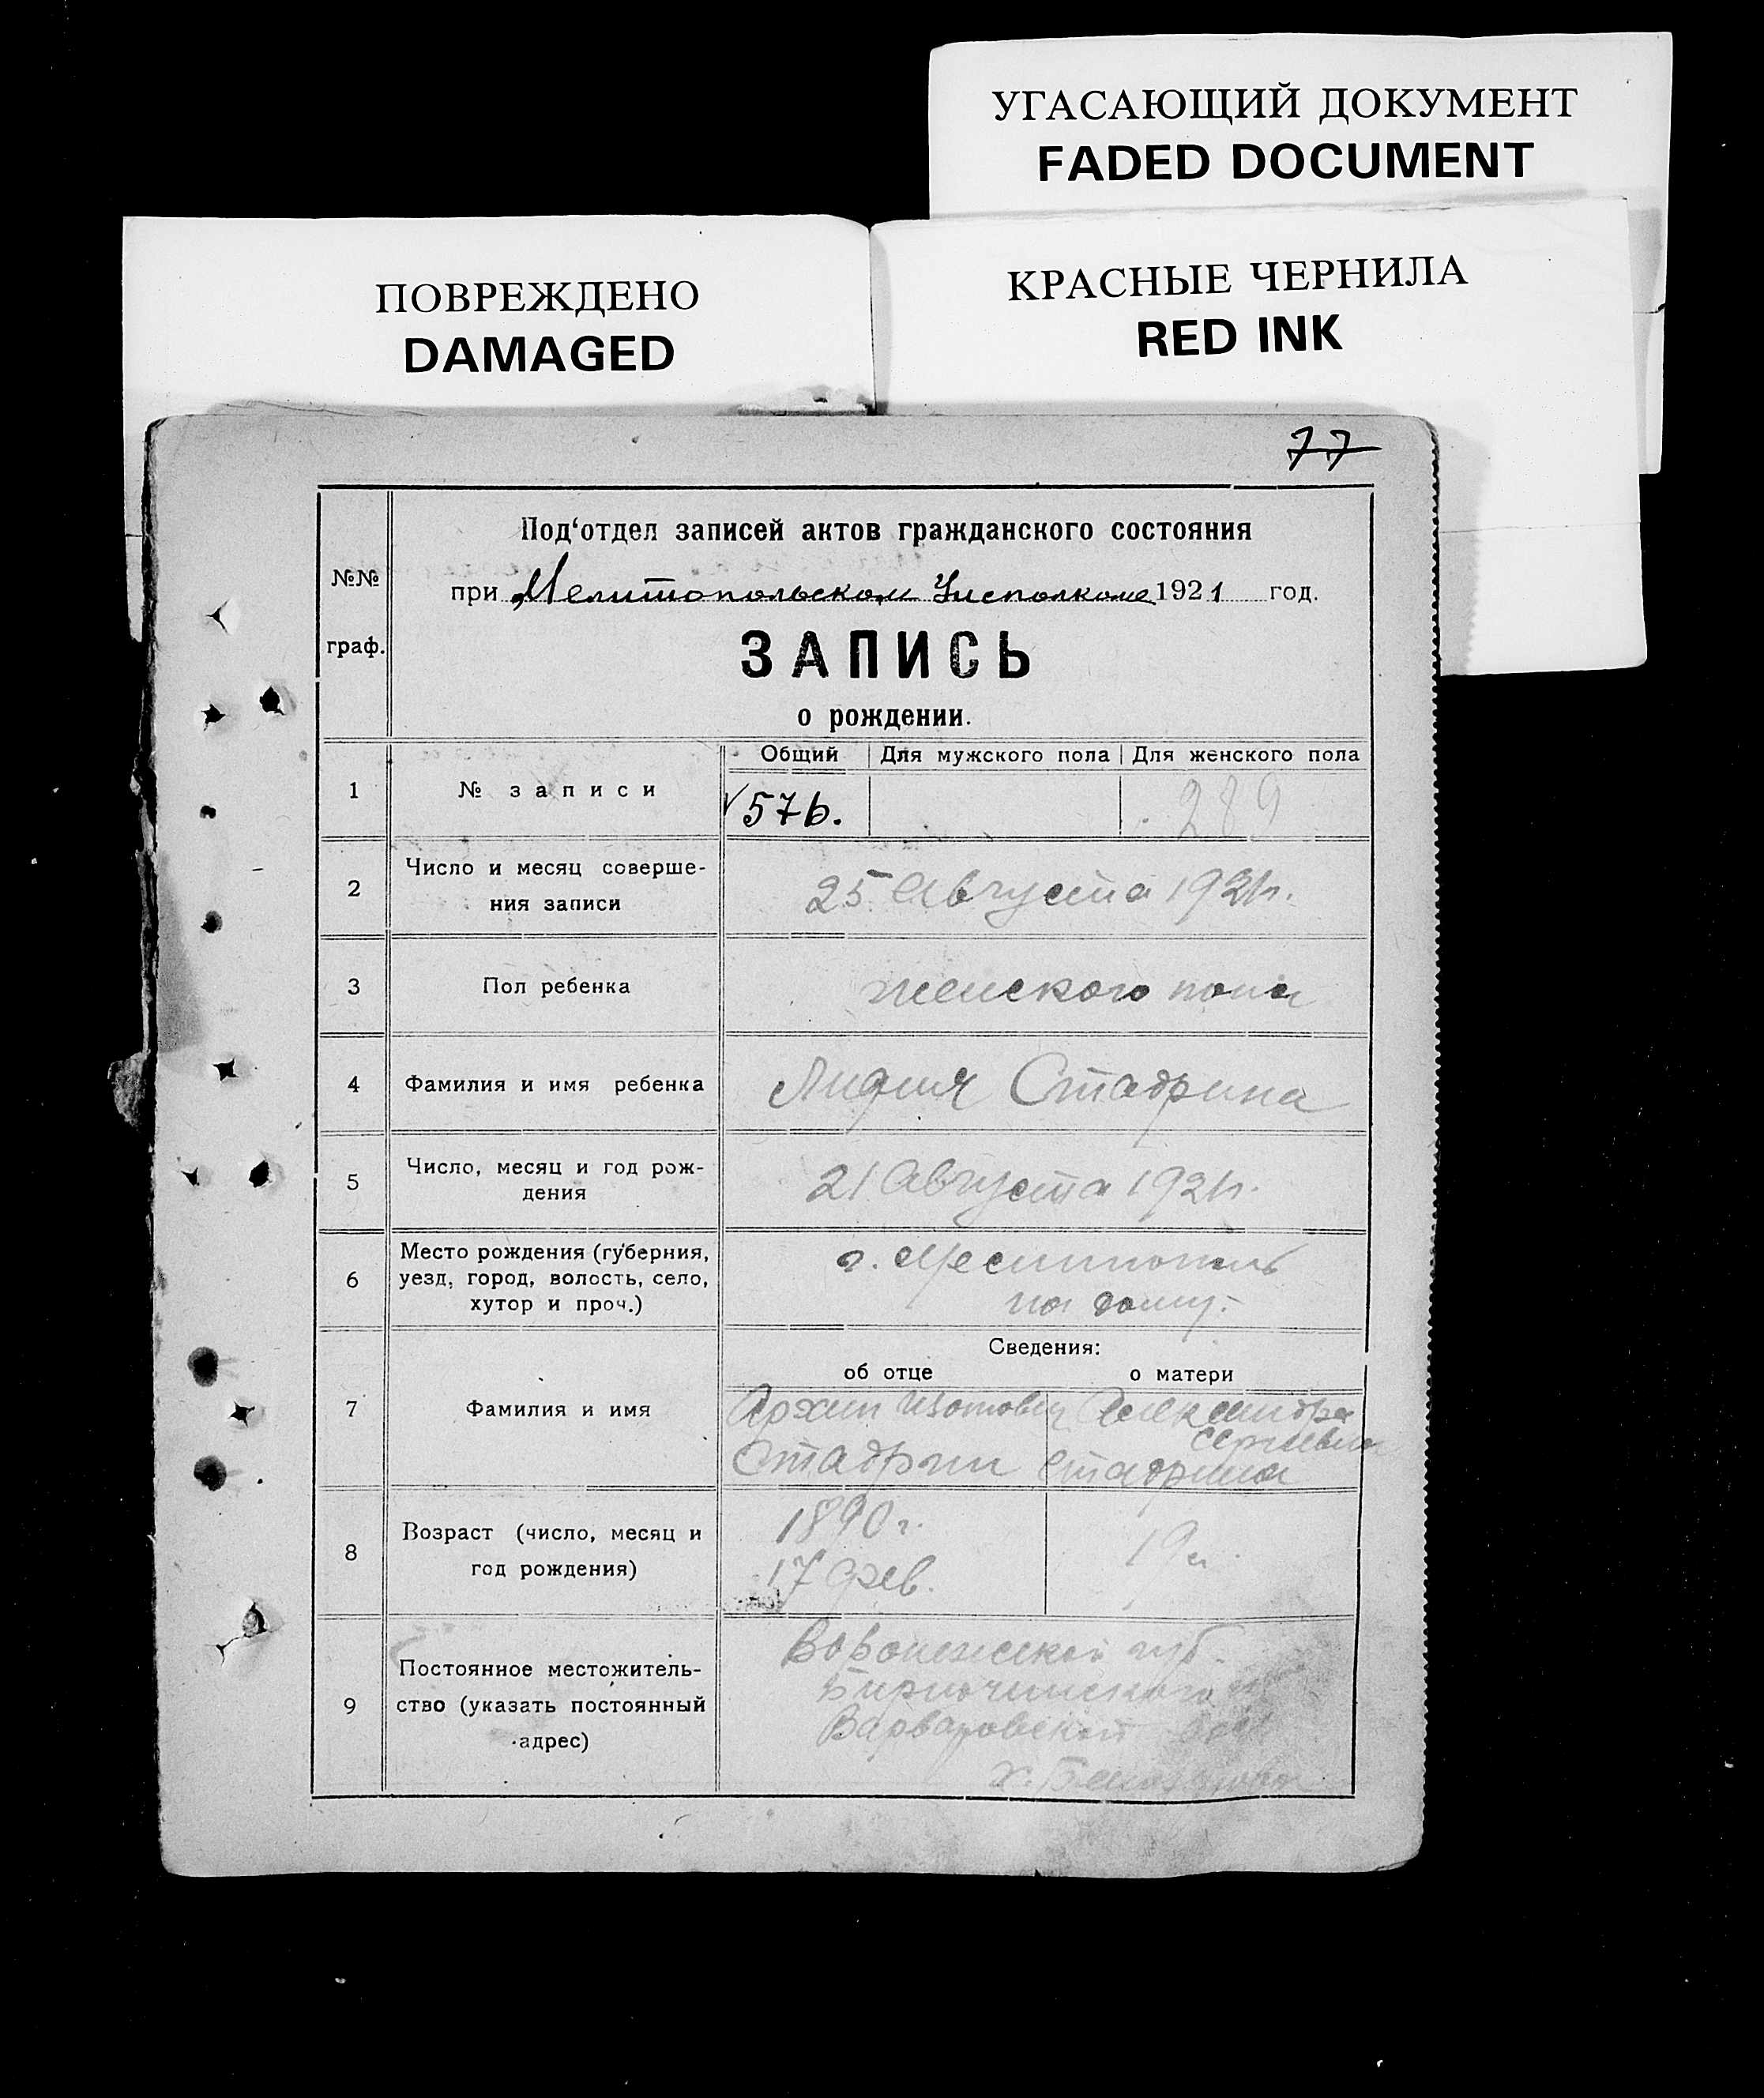 УГАСАЮЩИЙ ДОКУМЕНТ
FADED DOCUMENT
ПОВРЕЖДЕНО
DAMAGED
КРАСНЫЕ ЧЕРНИЛА
RED INK
77
№№
граф.
Под‘отдел записей актов гражданского состояния
при Мелитопольском Уисполкоме 1921 год.
ЗАПИСЬ
о рождении.
Общий Для мужского пола Для женского пола
1 № записи 576. 289
2 Число и месяц соверше-
ния записи
25 Августа 1921 г.
3 Пол ребенка женского пола
4 Фамилия и имя ребенка Лидия Стадрина
5 Число, месяц и год рож-
дения
21 Августа 1921 г.
6 Место рождения (губерния,
уезд, город, волость, село,
хутор и проч.)
г. Мелитополь
на дому.
Сведения:
об отце о матери
7 Фамилия и имя
Архип Изотович
Стадрин
Александра
Сергиевна
Стадрина
8 Возраст (число, месяц и
год рождения)
1890 г.
17 фев.
19 л.
9 Постоянное местожитель-
ство (указать постоянный
адрес)
Воронежской губ.
Бирюченского у
Варваровской вол
х.